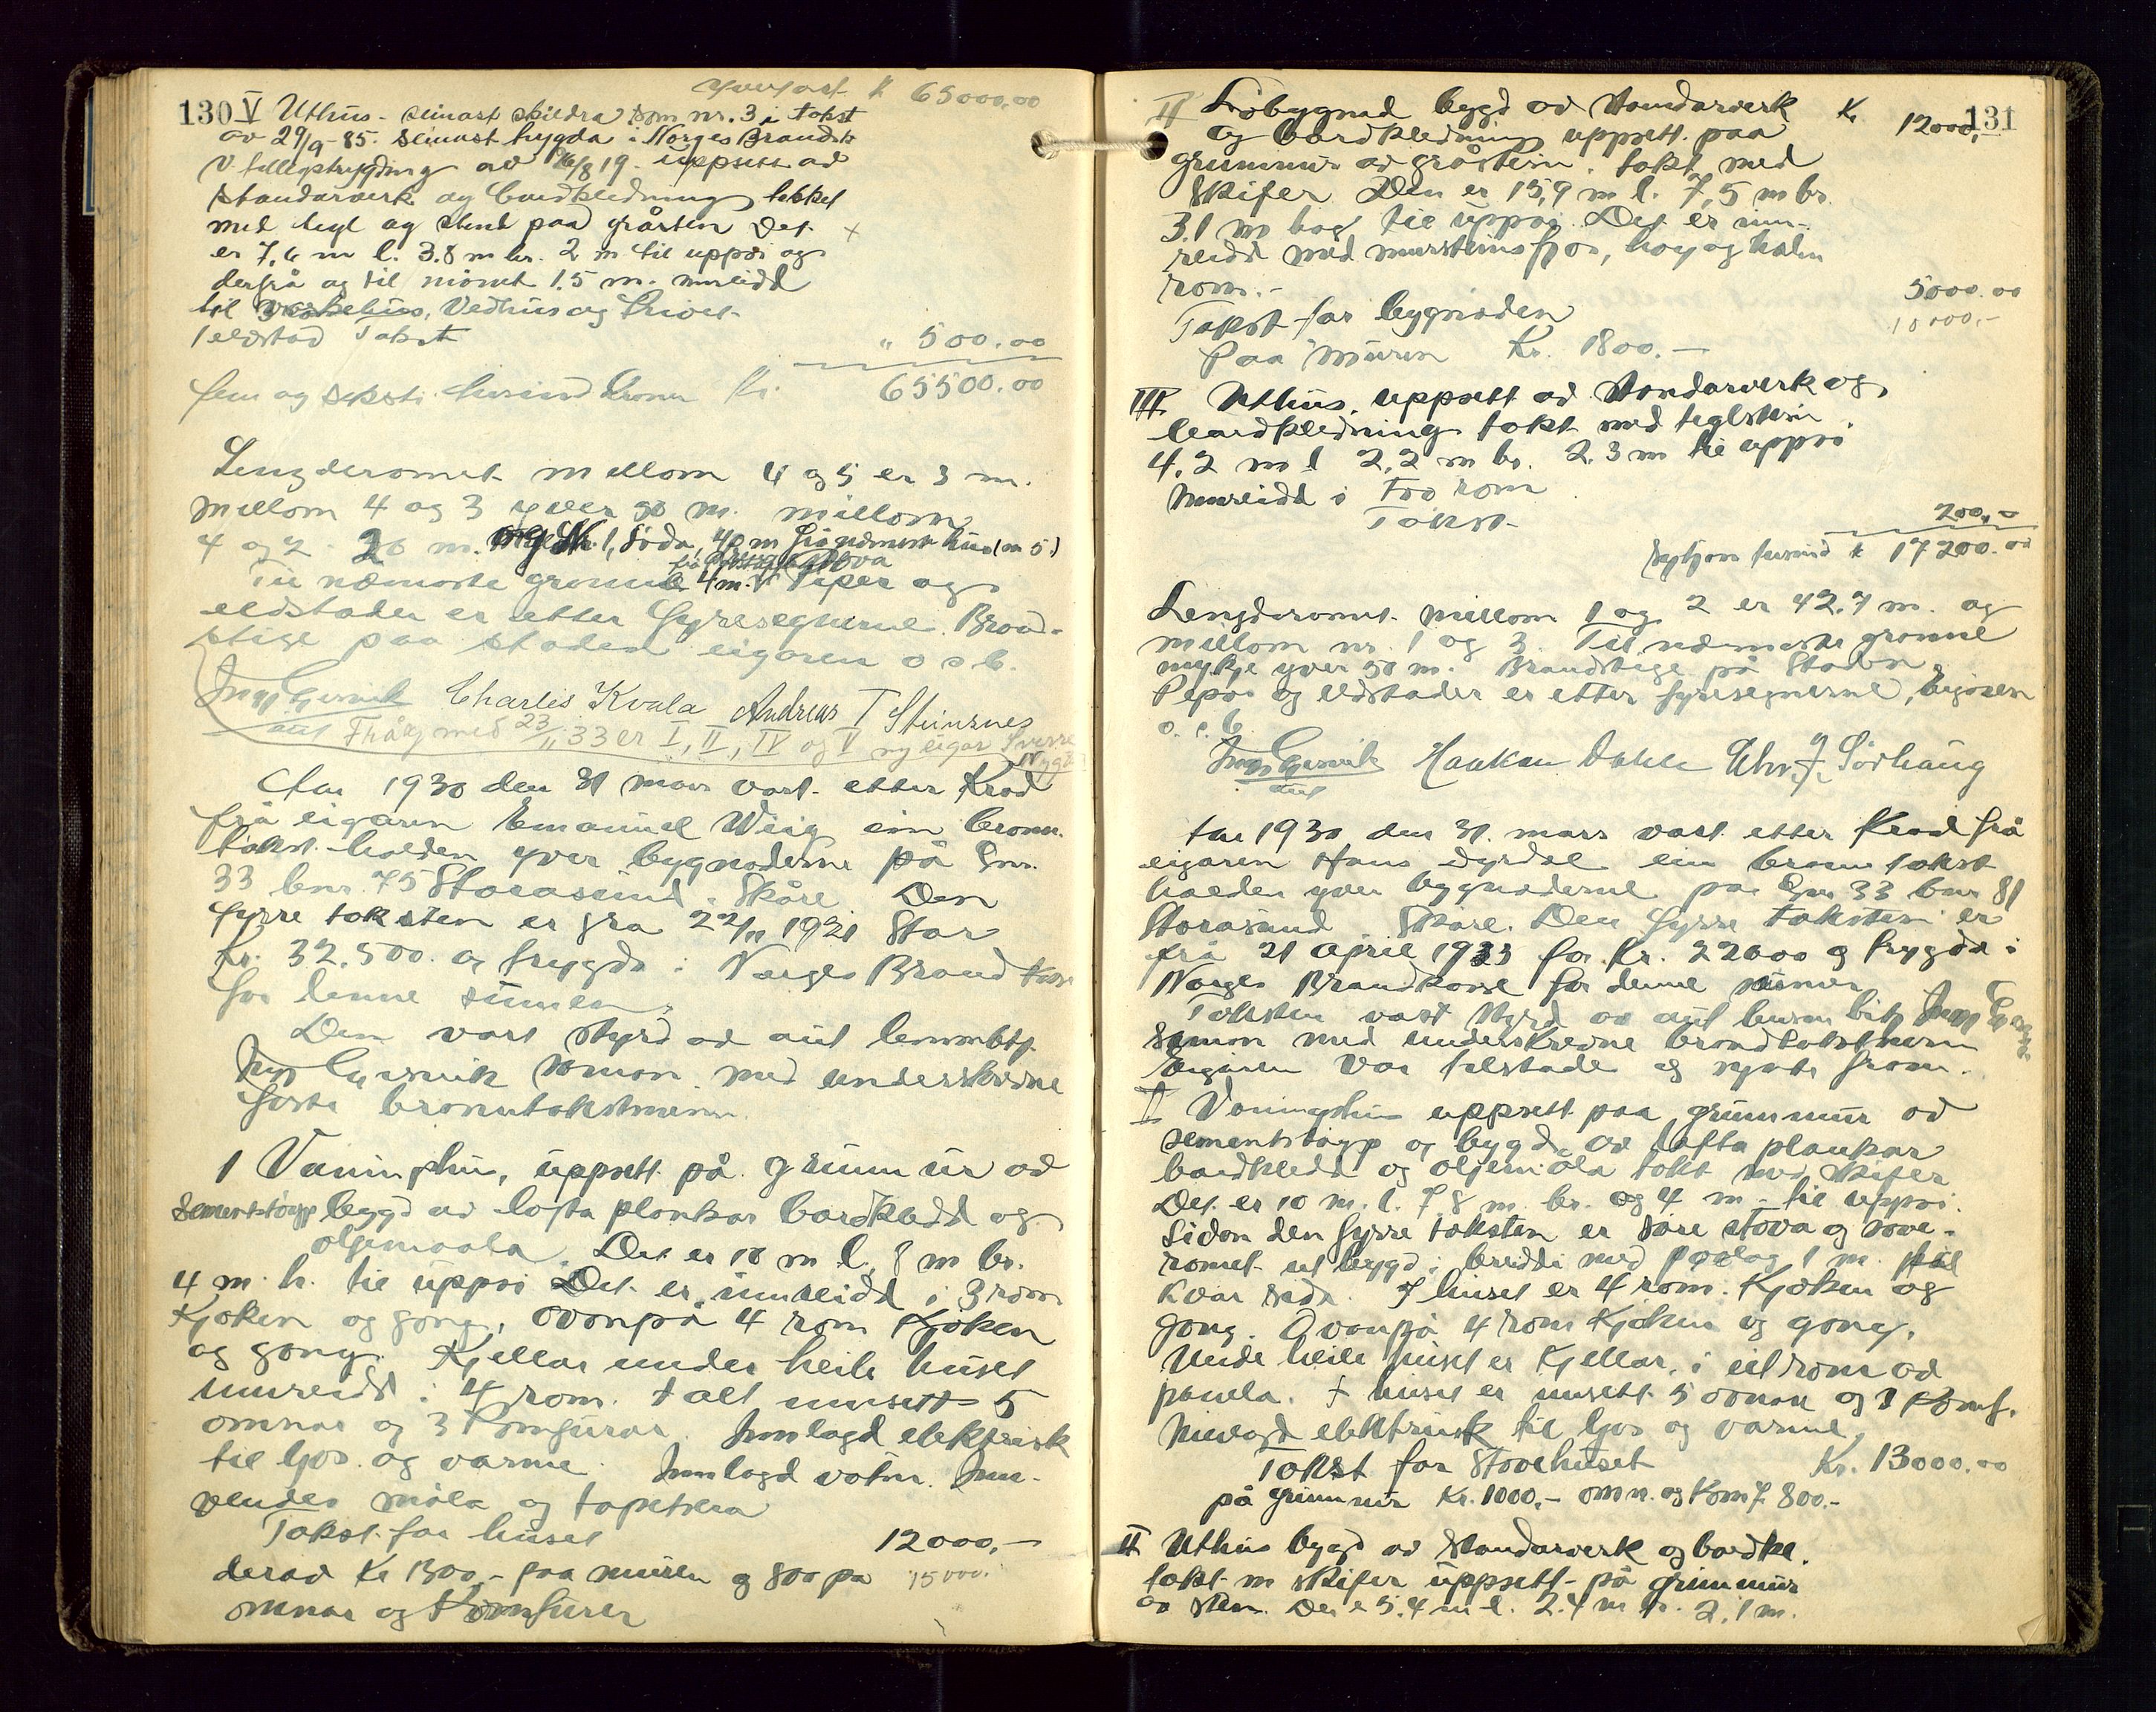 130
Yverført k 65000,00
V Uthus - seinast skildra som nr. 3 i takst
av 29/9-85. seinast trygda i Norges Brandk
v. tilleggstrygding av 16/8 19. uppsett av
standarverk og bordkledning tekket
med tegl og stend paa gråstein Det
er 7,6 m l. 3.8 m br. 2 m til uppsi og
derfrå og til mönet 1,5 m. innreidd
til Vaskehus, Vedhus og Privet
1 eldstad Takst
" 500.00
fem og seksti tusind kroner Kr. 65500.00
Lengderomet mellom 4 og 5 er 3 m.
mellom 4 og 3 yver 50 m. mellom
4 og 2 20 m. Nr. 1, Löda, 40 m frå næmaste hus (nr 5)
Til næmaste granne 4 m. Piper og
eldstader er etter fyresegnerne. Brand-
stige paa staden eigaren o s b.
Charlis Kvala Andreas T Steinsnes
aut
Frålagd med 23 " 33 er I, II, IV og V ny eigar Sverre
Aar 1930 den 31 mars vart etter Krav
frå eigaren Emanuel Wiig ein brann-
takst halden yver bygnaderne på Gnr.
33 bnr. 75 Storasund, Skåre Den
fyrre taksten er fra 22/11 1921 Stor
Kr. 32.500. og trygda i Norges Brandkasse
for denne summen.
Den vart styrd av aut lensmbtj.
Gjesvik saman med underskrivne
faste branntakstmenn.
1 Vaaningshus, uppsett på grunnmur av
sementstøyp bygd av lafta plankar bordkledd og
oljemaala. Det er 10 m l. 8 m br.
4 m. h. til uppsi Det er innreidd i 3 rom
Kjøken og gong, ovanpå 4 rom Kjøken
og gong. Kjellar under heile huset
innreidd i 4 rom. I alt innsett 5
omnar og 3 Komfurar. Innlagd elektrisk
til ljos og varme. Innlagd vatn. Inn-
vendes måla og tapetsera
Takst for huset
12000,-
derav Kr 1300,- paa muren og 800 pa
15000.
omnar og Komfurer
131
II Løbygnad bygd av Standarverk Kr 12000,-
og bordkledning, uppsett paa
grunnmur av gråstein. takt med
Skifer Den er 15,9 m l. 7,5 m br.
3.1 m høg til uppsi. Det er inn-
reidd med mursteinsfjos, høy og halm
rom.-
5000.00
Takst for bygnaden
10000,-
Paa muren Kr. 1800.-
III Uthus, uppsett av Standarverk og
bordkledning takt med teglstein
4,2 m l 2,2 m br. 2.3 m til uppsi
Innreidd i Two rom
Takst
200,-
Syttjan tusind k 17200.00
Lengderomet mellom 1 og 2 er 42.7 m. og
mellom nr. 1 og 3. Til næmaste granne
mykje yver 50 m. Brandstige på Staden
Pipor og eldstader er etter fyresegnerne, Eigaren
o. s. b.
Haakon Dahle Chr. J. Sørhaug
aut
Aar 1930 den 31. mars vart etter Krav frå
eigaren Hans Dyrdal ein branntakst
halden yver bygnaderne paa Gnr 33 bnr 81
Storasund Skåre. Den fyrre taksten er
frå 21 april 1923 for Kr. 22600 og trygda i
Norges Brandkasse for denne sumen
Taksten vart styrd av aut lensm btj
saman med underskrivne brandtakstmenn
Eigaren var tilstade og synte fram.
I Vaningshus uppsett paa grunnmur av
sementstøyp og bygd av lafta plankar
bordkledd og oljemåla takt med skifer
Det er 10 m. l. 7.8 m. br. og 4 m - til uppsi.
Sidan den fyrre taksten er søre stova og sove-
romet utbygd i breidd med paalag 1 m.
kvar side. I huset er 4 rom. Kjøken og
gong. Ovanpå 4 rom Kjøken og gong.
Unde heile huset er Kjellar, i eit rom av
panela. I huset er innsett 5 ovnar og 1 Komf.
Innlagd elektrisk til ljos og varme
Takst for Stovehuset Kr. 13000.00
på grunnmur Kr. 1000.- omn. og Komf. 800.-
II Uthus bygd av Standarverk og bordkl.
takt m skifer uppsett på grunnmur
av stein. Det e 5.4 m l. 2.4 m br. 2.1 m.